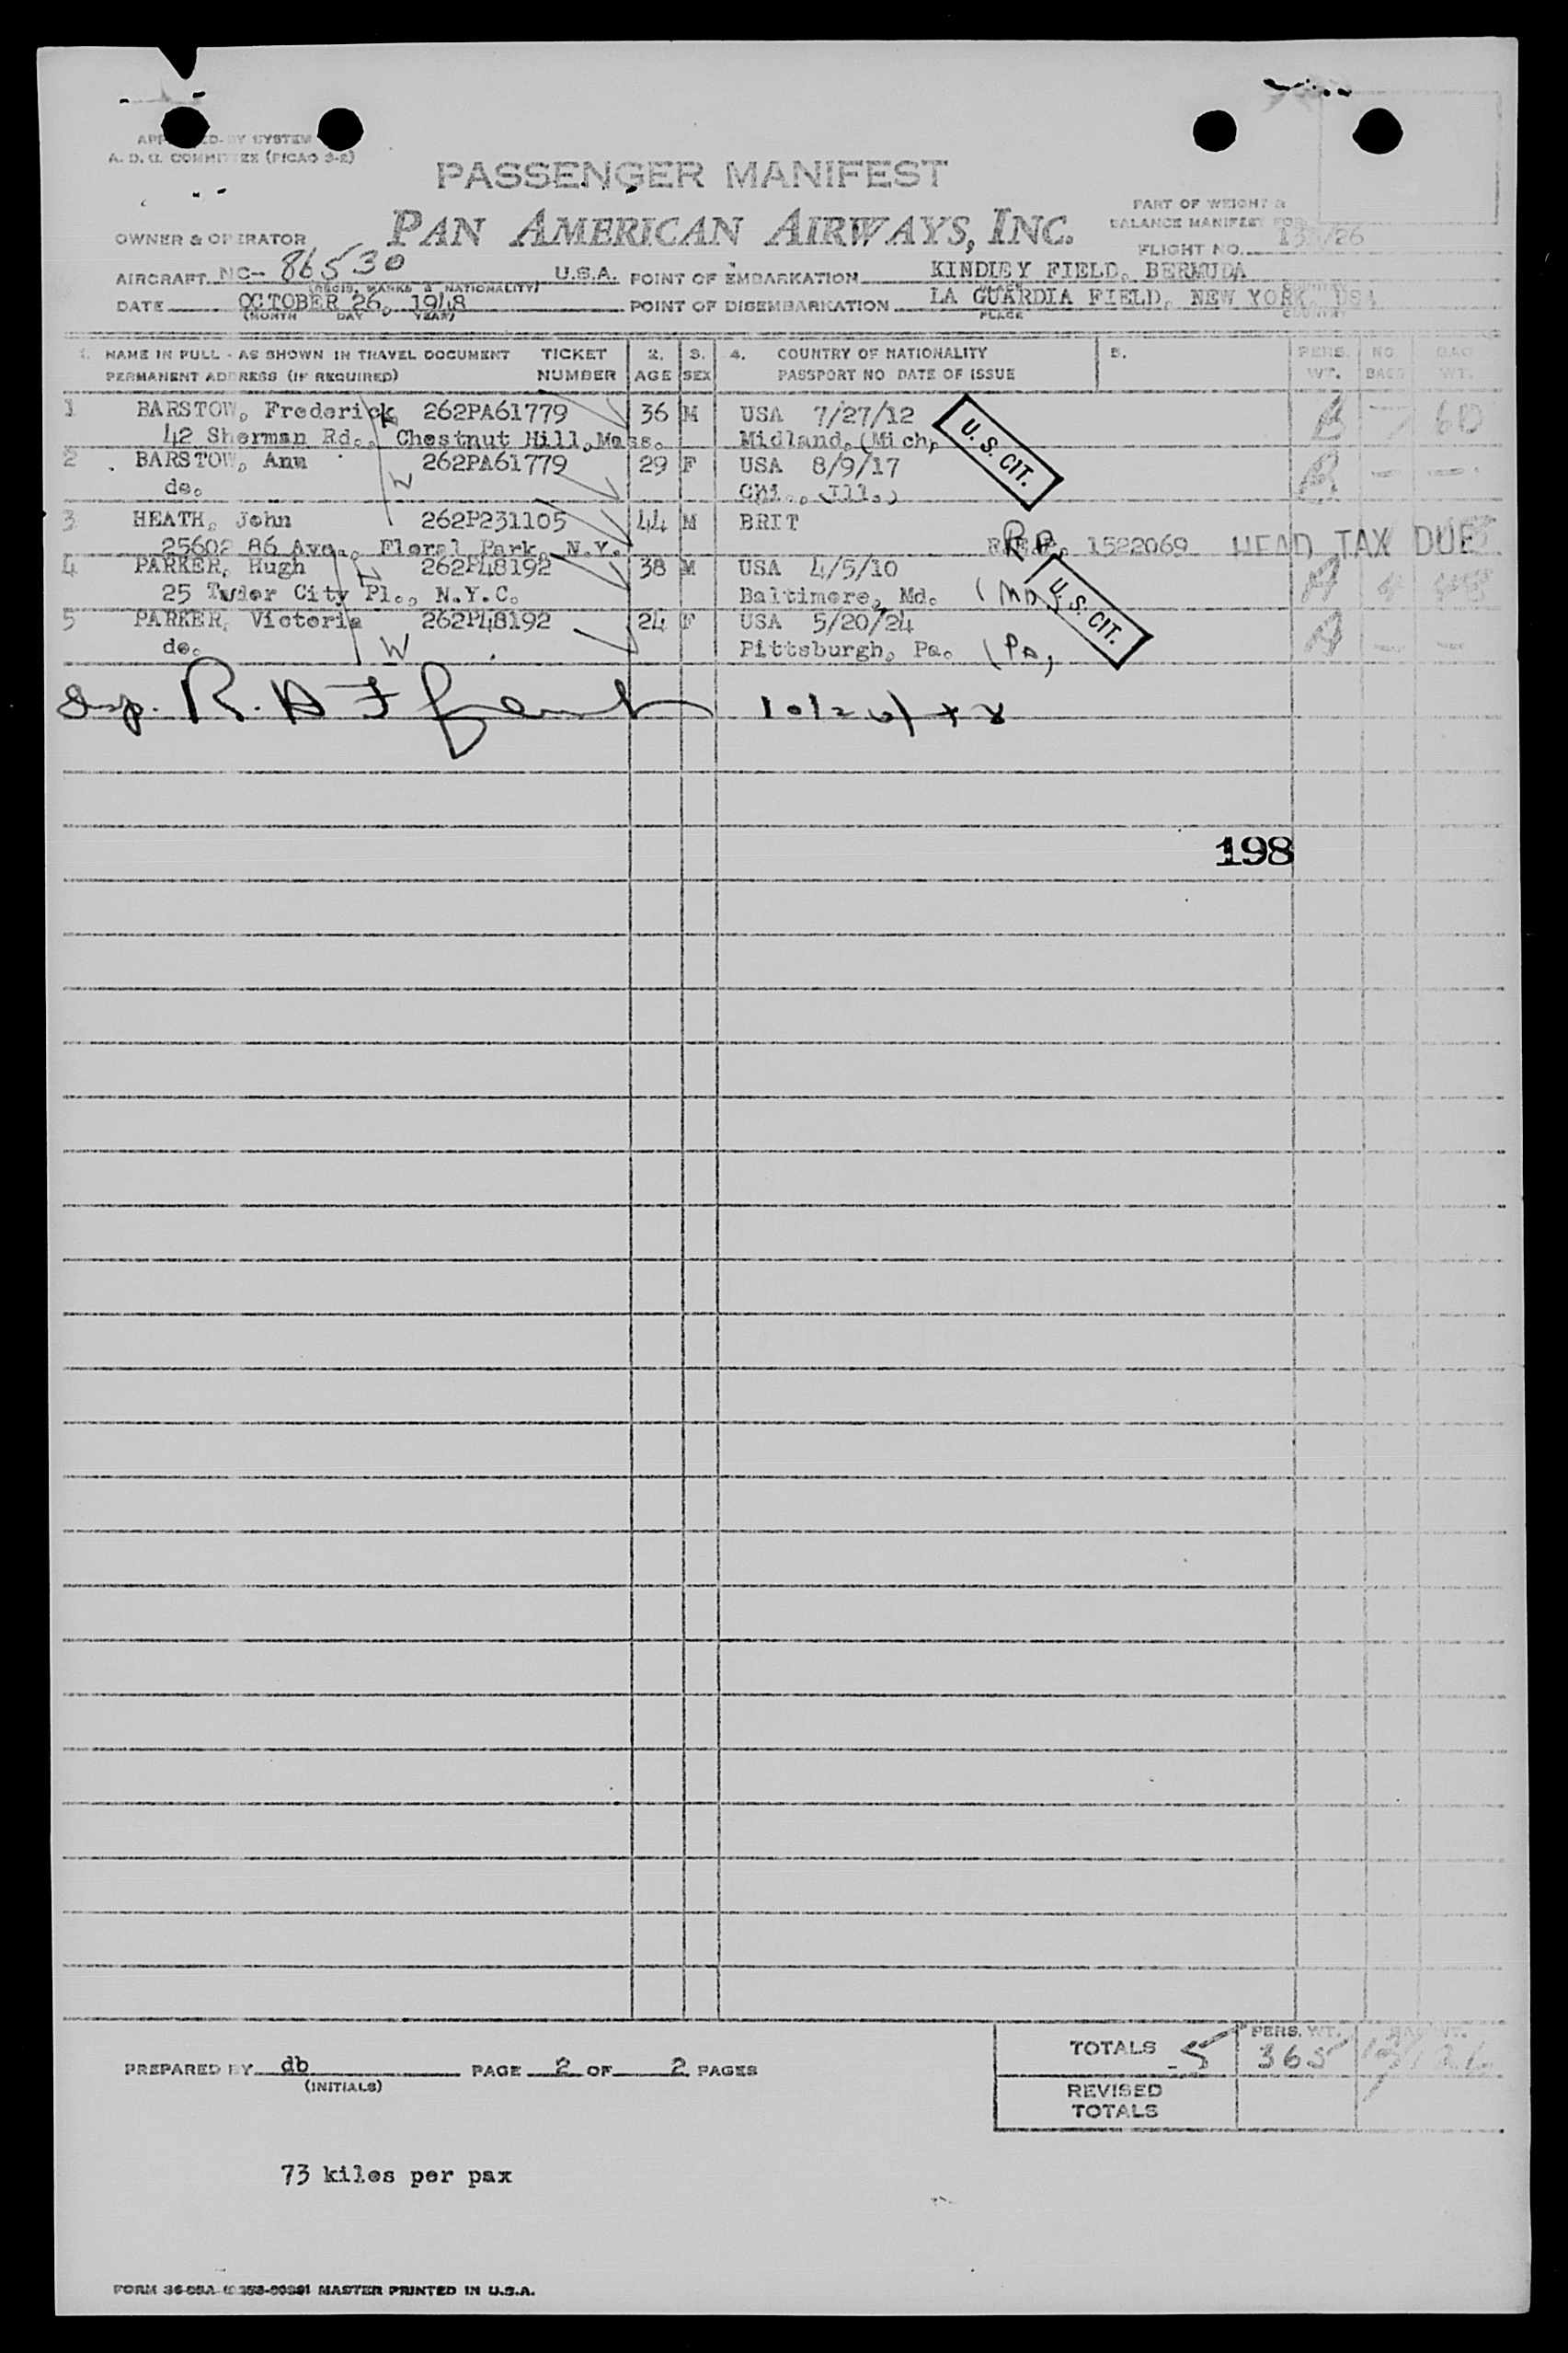 A. D. G. COMMITTEE (PICAO 3-2)
PASSENGER MANIFEST
PAN AMERICAN AIRWAYS, INC.
PART OF WEIGHT &
BALANCE MANIFEST FOR
FLIGHT NO.
OWNER & OPERATOR
AIRCRAFT NC- 86530 U.S.A. POINT OF EMBARKATION KINDLEY FIELD, BERMUDA
(REGIS. MARKS & NATIONALITY)
DATE OCTOBER 26, 1948 POINT OF DISEMBARKATION LA GUARDIA FIELD, NEW YORK, USA
(MONTH DAY YEAR) PLACE COUNTRY
1. NAME IN FULL - AS SHOWN IN TRAVEL DOCUMENT TICKET 2. 3. 4. COUNTRY OF NATIONALITY 5. PERS. NO. BAG
PERMANENT ADDRESS (IF REQUIRED) NUMBER AGE SEX PASSPORT NO DATE OF ISSUE WT. BAGS WT.
1 BARSTOW, Frederick 262PA61779 36 M USA 7/27/12 60
42 Sherman Rd., Chestnut Hill, Mass. Midland, (Mich, U. S. CIT.
2 BARSTOW, Ann W 262PA61779 29 F USA 8/9/17
do. Chi., Ill.)
3 HEATH, John 262P231105 44 M BRIT
25602 86 Ave., Floral Park, N.Y. 1522069 HEAD TAX DUE
4 PARKER, Hugh 262P48192 38 M USA 4/5/10
25 Tudor City Pl., N.Y.C. Baltimore, Md. U. S. CIT.
5 PARKER, Victoria 262P48192 24 F USA 5/20/24
do. W Pittsburgh, Pa. (Pa,
198
TOTALS 5 PERS. WT. 365
PREPARED BY db PAGE 2 OF 2 PAGES
(INITIALS)
REVISED
TOTALS
73 kilos per pax
MASTER PRINTED IN U.S.A.